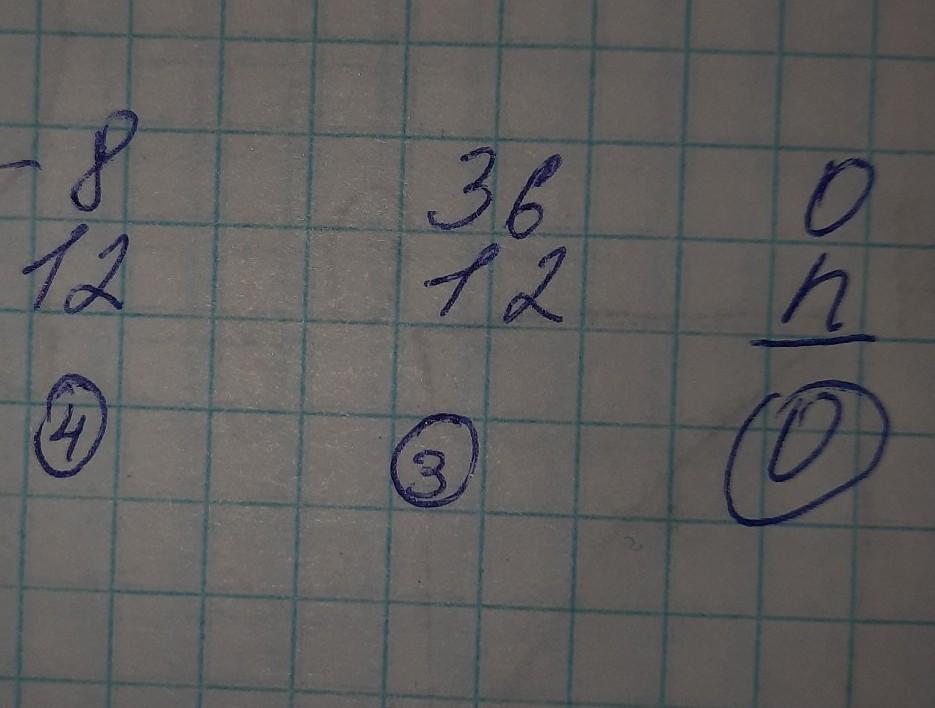 - 8 36 0
12 12 n
4 3 0